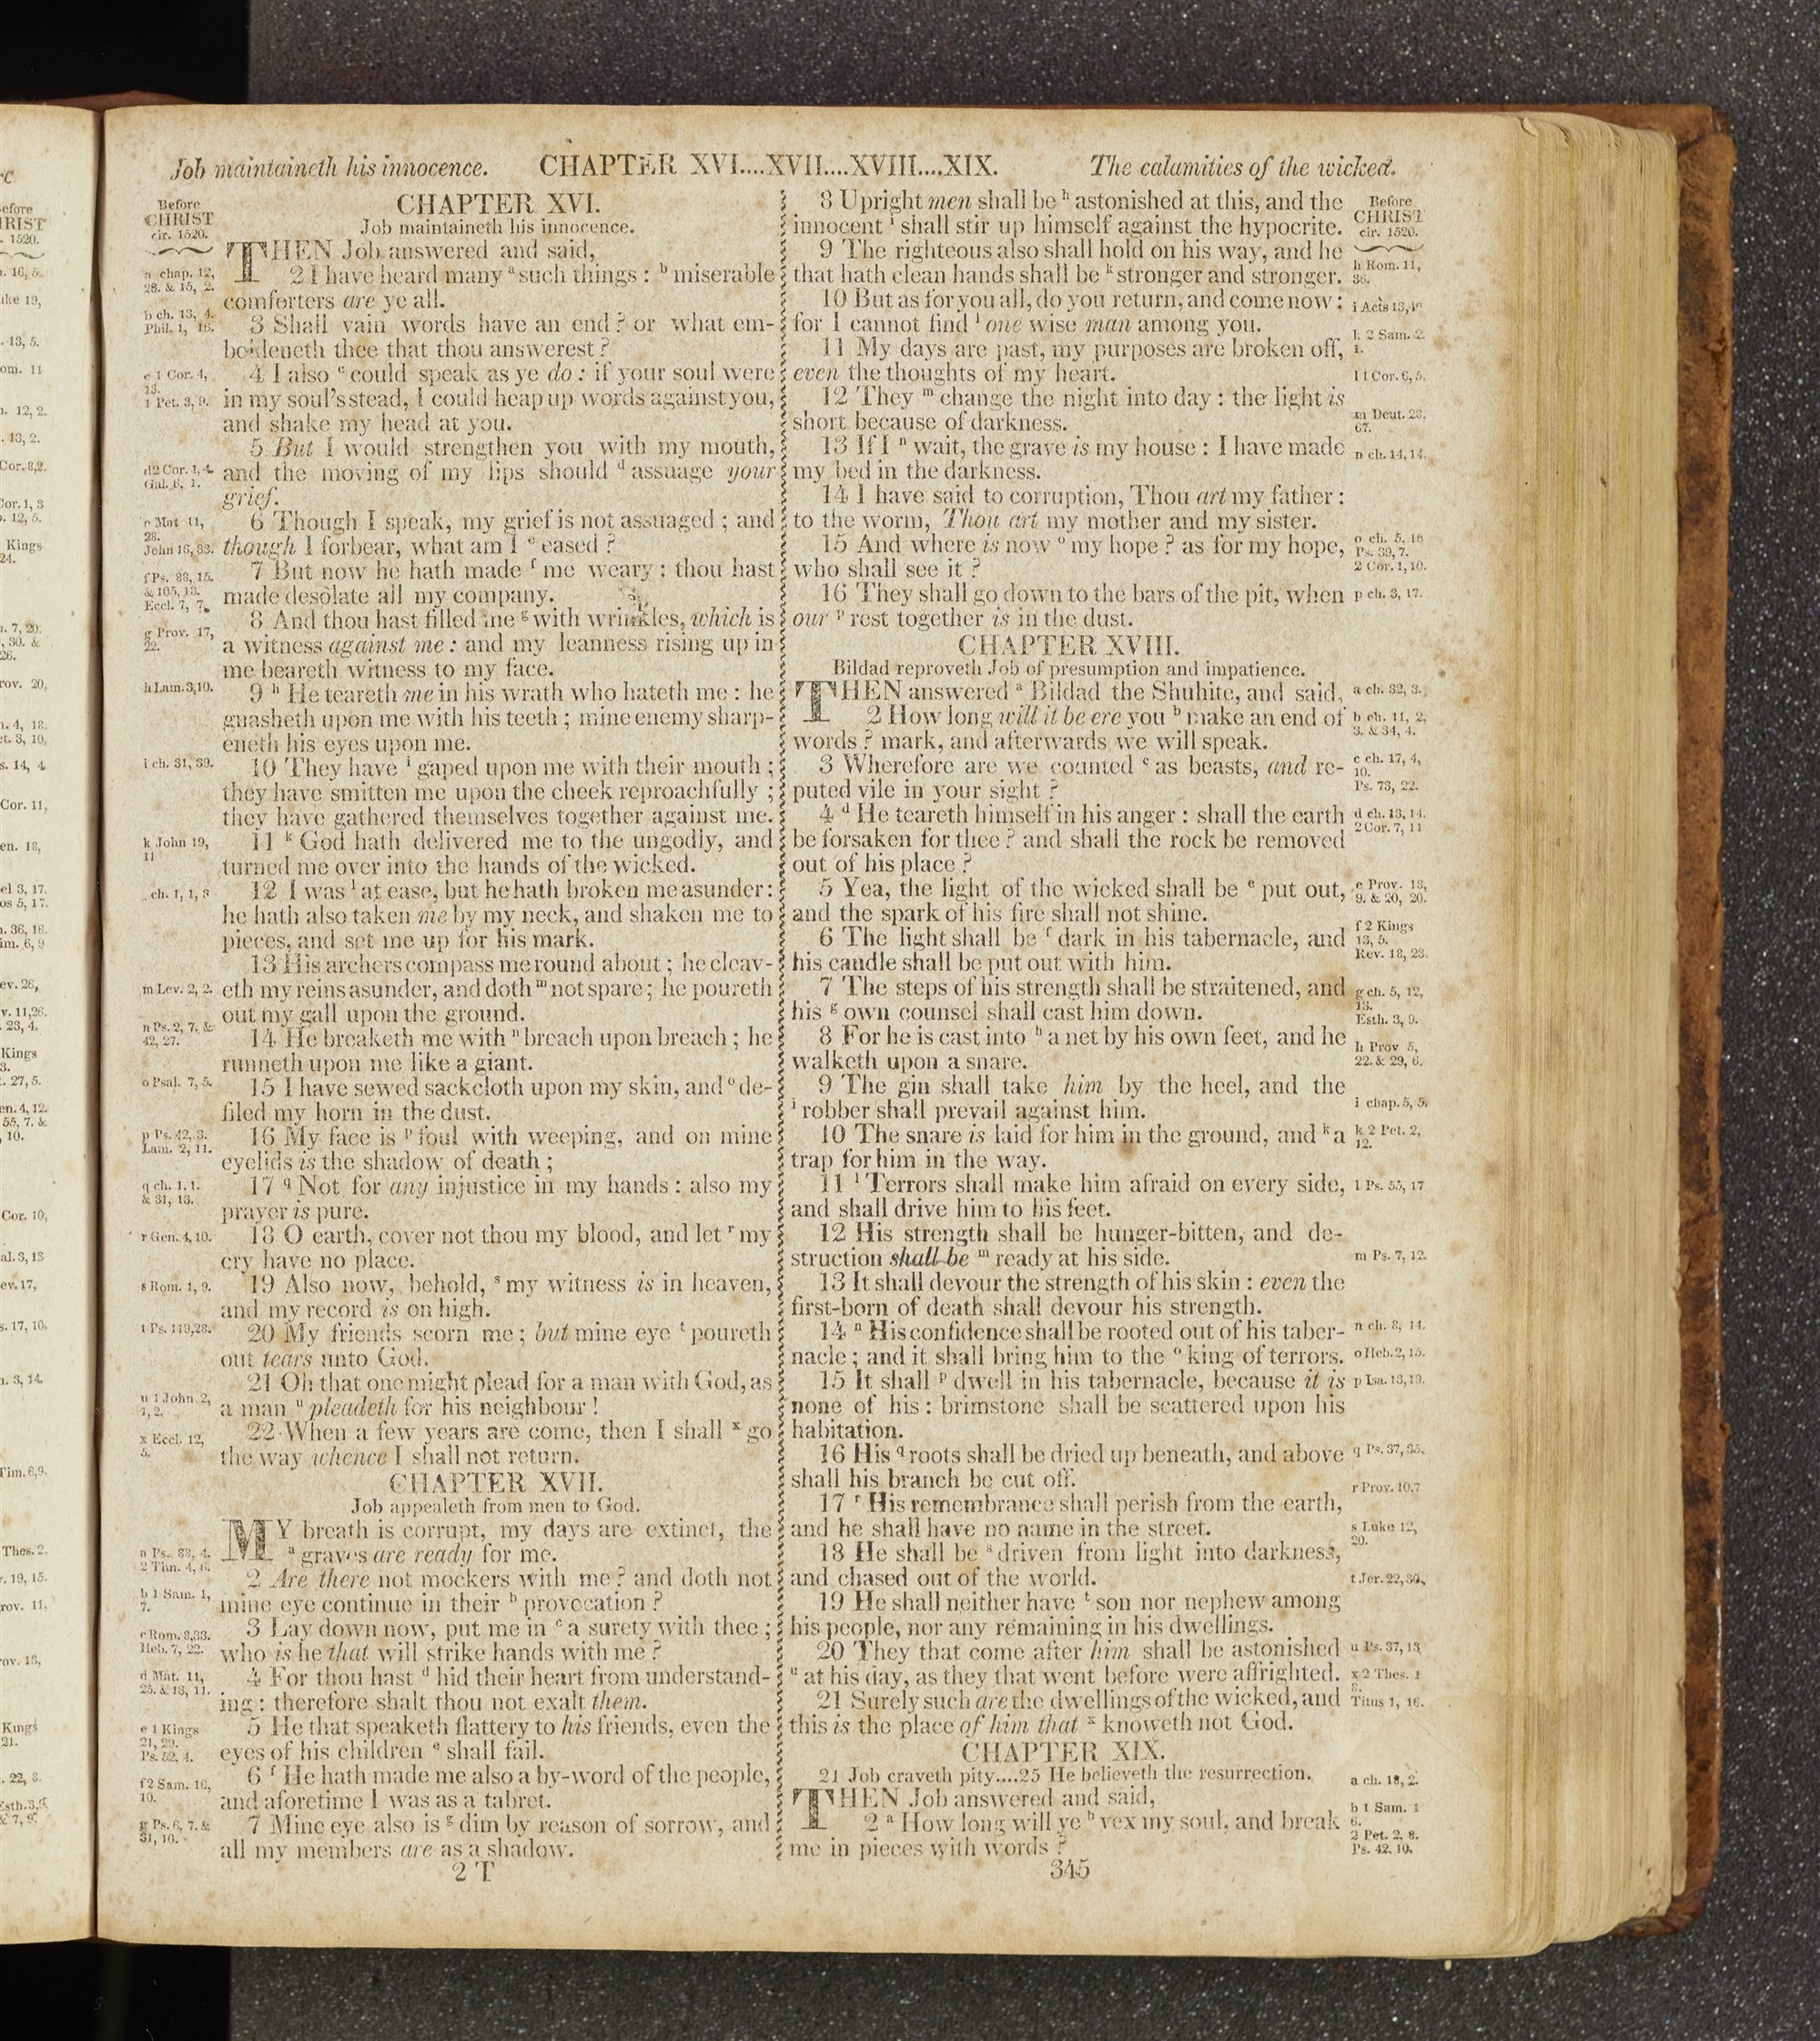 Job maintaineth his innocence. CHAPTER XVI....XVII....XVIII....XIX. The calamities of the wicked.
Before
CHRIST
cir. 1520.
a chap. 12,
28. & 15, 2.
b ch. 13, 4.
Phil. 1, 16.
c 1 Cor. 4,
13.
1 Pet. 3, 9.
d 2 Cor. 1, 4.
Gal. 6, 1.
e Mat 11,
28.
John 16, 33.
f Ps. 88, 15.
& 105, 18.
Eccl. 7, 7.
g Prov. 17,
22.
h Lam. 3, 10.
i ch. 31, 39.
k John 19,
11
ch. 1, 1, 3
m Lev. 2, 2.
n Ps. 2, 7. &
42, 27.
o Psal. 7, 5.
p Ps. 42, 3.
Lam. 2, 11.
q ch. 1, 1.
& 31, 13.
r Gen. 4, 10.
s Rom. 1, 9.
t Ps. 119, 28.
u 1 John 2,
1, 2.
x Eccl. 12,
5.
a Ps. 88, 4.
2 Tim. 4, 6.
b 1 Sam. 1,
7.
c Rom. 8, 33.
Heb. 7, 22.
d Mat. 11,
25. & 13, 11.
e 1 Kings
21, 29.
Ps. 52, 4.
f 2 Sam. 16,
10.
g Ps. 6, 7. &
31, 10.
CHAPTER XVI.
Job maintaineth his innocence.
THEN Job answered and said,
2 I have heard many a such things : b miserable
comforters are ye all.
3 Shall vain words have an end ? or what em-
boldeneth thee that thou answerest ?
4 I also c could speak as ye do : if your soul were
in my soul's stead, I could heap up words against you,
and shake my head at you.
5 But I would strengthen you with my mouth,
and the moving of my lips should d assuage your
grief.
6 Though I speak, my grief is not assuaged ; and
though I forbear, what am I e eased ?
7 But now he hath made f me weary : thou hast
made desolate all my company.
8 And thou hast filled me g with wrinkles, which is
a witness against me : and my leanness rising up in
me beareth witness to my face.
9 h He teareth me in his wrath who hateth me : he
gnasheth upon me with his teeth ; mine enemy sharp-
eneth his eyes upon me.
10 They have i gaped upon me with their mouth ;
they have smitten me upon the cheek reproachfully ;
they have gathered themselves together against me.
11 k God hath delivered me to the ungodly, and
turned me over into the hands of the wicked.
12 I was l at ease, but he hath broken me asunder :
he hath also taken me by my neck, and shaken me to
pieces, and set me up for his mark.
13 His archers compass me round about ; he cleav-
eth my reins asunder, and doth m not spare ; he poureth
out my gall upon the ground.
14 He breaketh me with n breach upon breach ; he
runneth upon me like a giant.
15 I have sewed sackcloth upon my skin, and o de-
filed my horn in the dust.
16 My face is p foul with weeping, and on mine
eyelids is the shadow of death ;
17 q Not for any injustice in my hands : also my
prayer is pure.
18 O earth, cover not thou my blood, and let r my
cry have no place.
19 Also now, behold, s my witness is in heaven,
and my record is on high.
20 My friends scorn me ; but mine eye t poureth
out tears unto God.
21 Oh that one might plead for a man with God, as
a man u pleadeth for his neighbour !
22 When a few years are come, then I shall x go
the way whence I shall not return.
CHAPTER XVII.
Job appealeth from men to God.
MY breath is corrupt, my days are extinct, the
a graves are ready for me.
2 Are there not mockers with me ? and doth not
mine eye continue in their b provocation ?
3 Lay down now, put me in c a surety with thee ;
who is he that will strike hands with me ?
4 For thou hast d hid their heart from understand-
ing : therefore shalt thou not exalt them.
5 He that speaketh flattery to his friends, even the
eyes of his children e shall fail.
6 f He hath made me also a by-word of the people,
and aforetime I was as a tabret.
7 Mine eye also is g dim by reason of sorrow, and
all my members are as a shadow.
2 T
8 Upright men shall be h astonished at this, and the
innocent i shall stir up himself against the hypocrite.
9 The righteous also shall hold on his way, and he
that hath clean hands shall be k stronger and stronger.
10 But as for you all, do you return, and come now :
for I cannot find l one wise man among you.
11 My days are past, my purposes are broken off,
even the thoughts of my heart.
12 They m change the night into day : the light is
short because of darkness.
13 If I n wait, the grave is my house : I have made
my bed in the darkness.
14 I have said to corruption, Thou art my father :
to the worm, Thou art my mother and my sister.
15 And where is now o my hope ? as for my hope,
who shall see it ?
16 They shall go down to the bars of the pit, when
our p rest together is in the dust.
CHAPTER XVIII.
Bildad reproveth Job of presumption and impatience.
THEN answered a Bildad the Shuhite, and said,
2 How long will it be ere you b make an end of
words ? mark, and afterwards we will speak.
3 Wherefore are we counted c as beasts, and re-
puted vile in your sight ?
4 d He teareth himself in his anger : shall the earth
be forsaken for thee ? and shall the rock be removed
out of his place ?
5 Yea, the light of the wicked shall be e put out,
and the spark of his fire shall not shine.
6 The light shall be f dark in his tabernacle, and
his candle shall be put out with him.
7 The steps of his strength shall be straitened, and
his g own counsel shall cast him down.
8 For he is cast into h a net by his own feet, and he
walketh upon a snare.
9 The gin shall take him by the heel, and the
i robber shall prevail against him.
10 The snare is laid for him in the ground, and k a
trap for him in the way.
11 l Terrors shall make him afraid on every side,
and shall drive him to his feet.
12 His strength shall be hunger-bitten, and de-
struction shall be m ready at his side.
13 It shall devour the strength of his skin : even the
first-born of death shall devour his strength.
14 n His confidence shall be rooted out of his taber-
nacle ; and it shall bring him to the o king of terrors.
15 It shall p dwell in his tabernacle, because it is
none of his : brimstone shall be scattered upon his
habitation.
16 His q roots shall be dried up beneath, and above
shall his branch be cut off.
17 r His remembrance shall perish from the earth,
and he shall have no name in the street.
18 He shall be s driven from light into darkness,
and chased out of the world.
19 He shall neither have t son nor nephew among
his people, nor any remaining in his dwellings.
20 They that come after him shall be astonished
u at his day, as they that went before were affrighted.
21 Surely such are the dwellings of the wicked, and
this is the place of him that x knoweth not God.
CHAPTER XIX.
21 Job craveth pity....25 He believeth the resurrection.
THEN Job answered and said,
2 a How long will ye b vex my soul, and break
me in pieces with words ?
345
Before
CHRIST
cir. 1520.
h Rom. 11,
36.
i Acts 13, 4
k 2 Sam. 2.
1.
l 1 Cor. 6, 5.
m Deut. 28.
67.
n ch. 14, 14.
o ch. 5, 16
Ps. 39, 7.
2 Cor. 1, 10.
p ch. 3, 17.
a ch. 32, 3.
b ch. 11, 2,
3. & 34, 4.
c ch. 17, 4,
10.
Ps. 73, 22.
d ch. 13, 14.
2 Cor. 7, 11
e Prov. 13,
9. & 20, 20.
f 2 Kings
13, 5.
Rev. 18, 23.
g ch. 5, 12,
13.
Esth. 3, 9.
h Prov 5,
22. & 29, 6.
i chap. 5, 5.
k 2 Pet. 2,
12.
l Ps. 55, 17
m Ps. 7, 12.
n ch. 8, 14.
o Heb. 2, 15.
p Isa. 13, 19.
q Ps. 37, 35.
r Prov. 10, 7
s Luke 12,
20.
t Jer. 22, 30.
u Ps. 37, 13
x 2 Thes. 1
Titus 1, 16.
a ch. 18, 2.
b 1 Sam. 1
6.
2 Pet. 2, 8.
Ps. 42, 10.